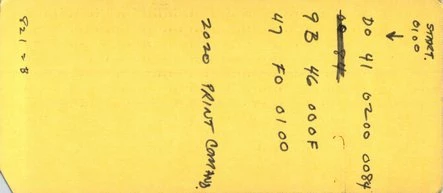 START.
0100
↓
D0 41 0200 0084
9B 46 000F
47 F0 0100
2020 PRINT COMMAND.
821-8